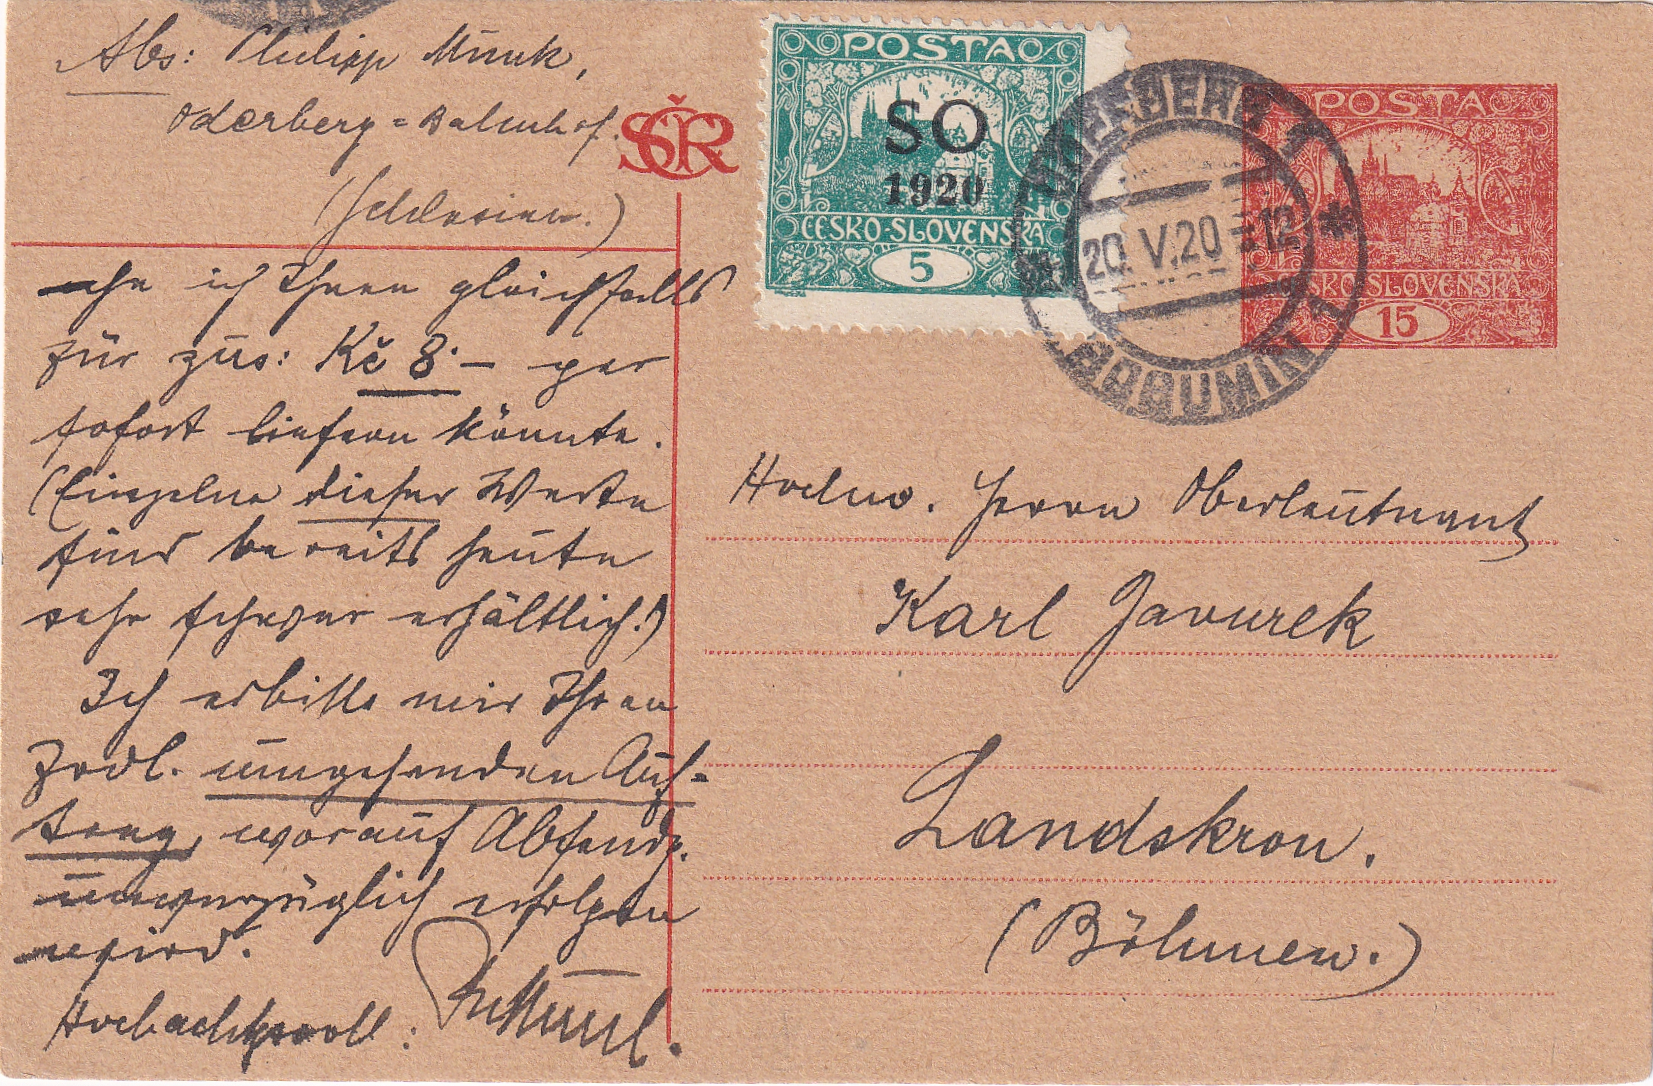 Abs: Philipp Munk,
Oderberg=Bahnhof.
(Schlesien.)
ČSR
POSTA
SO
1920
ČESKO-SLOVENSKA
5
ODERBERG 1
20. V. 20 -12
*
BOHUMÍN 1
POSTA
ČESKO-SLOVENSKA
15
ich Ihnen gleichfalls
für zus: Kč 8·– per
sofort liefern könnte.
(Einzelne dieser Werte
sind bereits heute
sehr schwer erhältlich!)
Ich erbitte mir Ihren
frdl. umgehenden Auf-
trag, worauf Absendg.
unverzüglich erfolgen
wird.
Hochachtungsvoll:
Hochw. Herrn Oberleutnant
Karl Javurek
Landskron.
(Böhmen.)